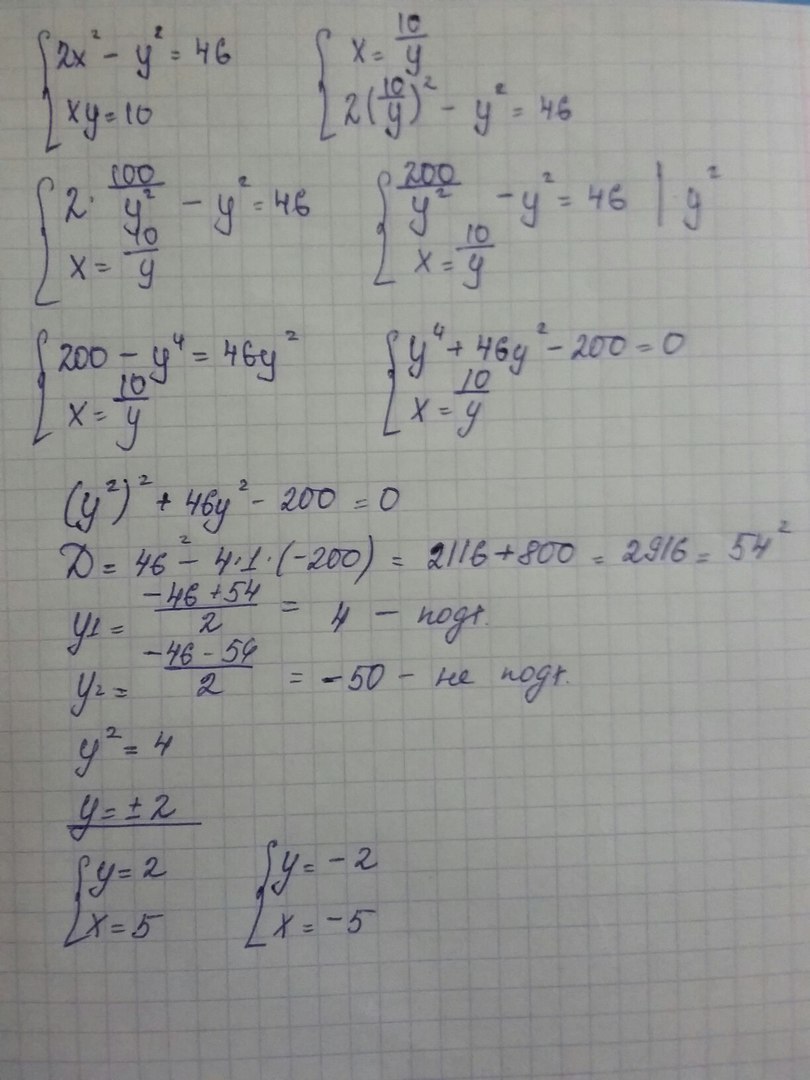 { 2x² - y² = 46
xy = 10
{ x = 10/y
2(10/y)² - y² = 46
{ 2· 100/y² - y² = 46
x = 10/y
{ 200/y² - y² = 46 | y²
x = 10/y
{ 200 - y⁴ = 46y²
x = 10/y
{ y⁴ + 46y² - 200 = 0
x = 10/y
(y²)² + 46y² - 200 = 0
D = 46² - 4·1·(-200) = 2116 + 800 = 2916 = 54²
y1 = (-46 + 54)/2 = 4 - подх.
y2 = (-46 - 54)/2 = -50 - не подх.
y² = 4
y = ±2
{ y = 2
x = 5
{ y = -2
x = -5